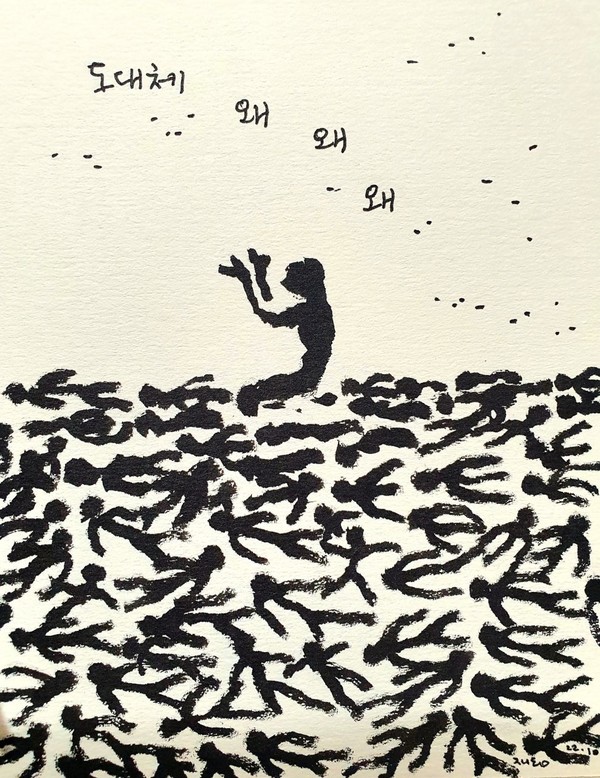 도대체
왜
왜
왜
22.10